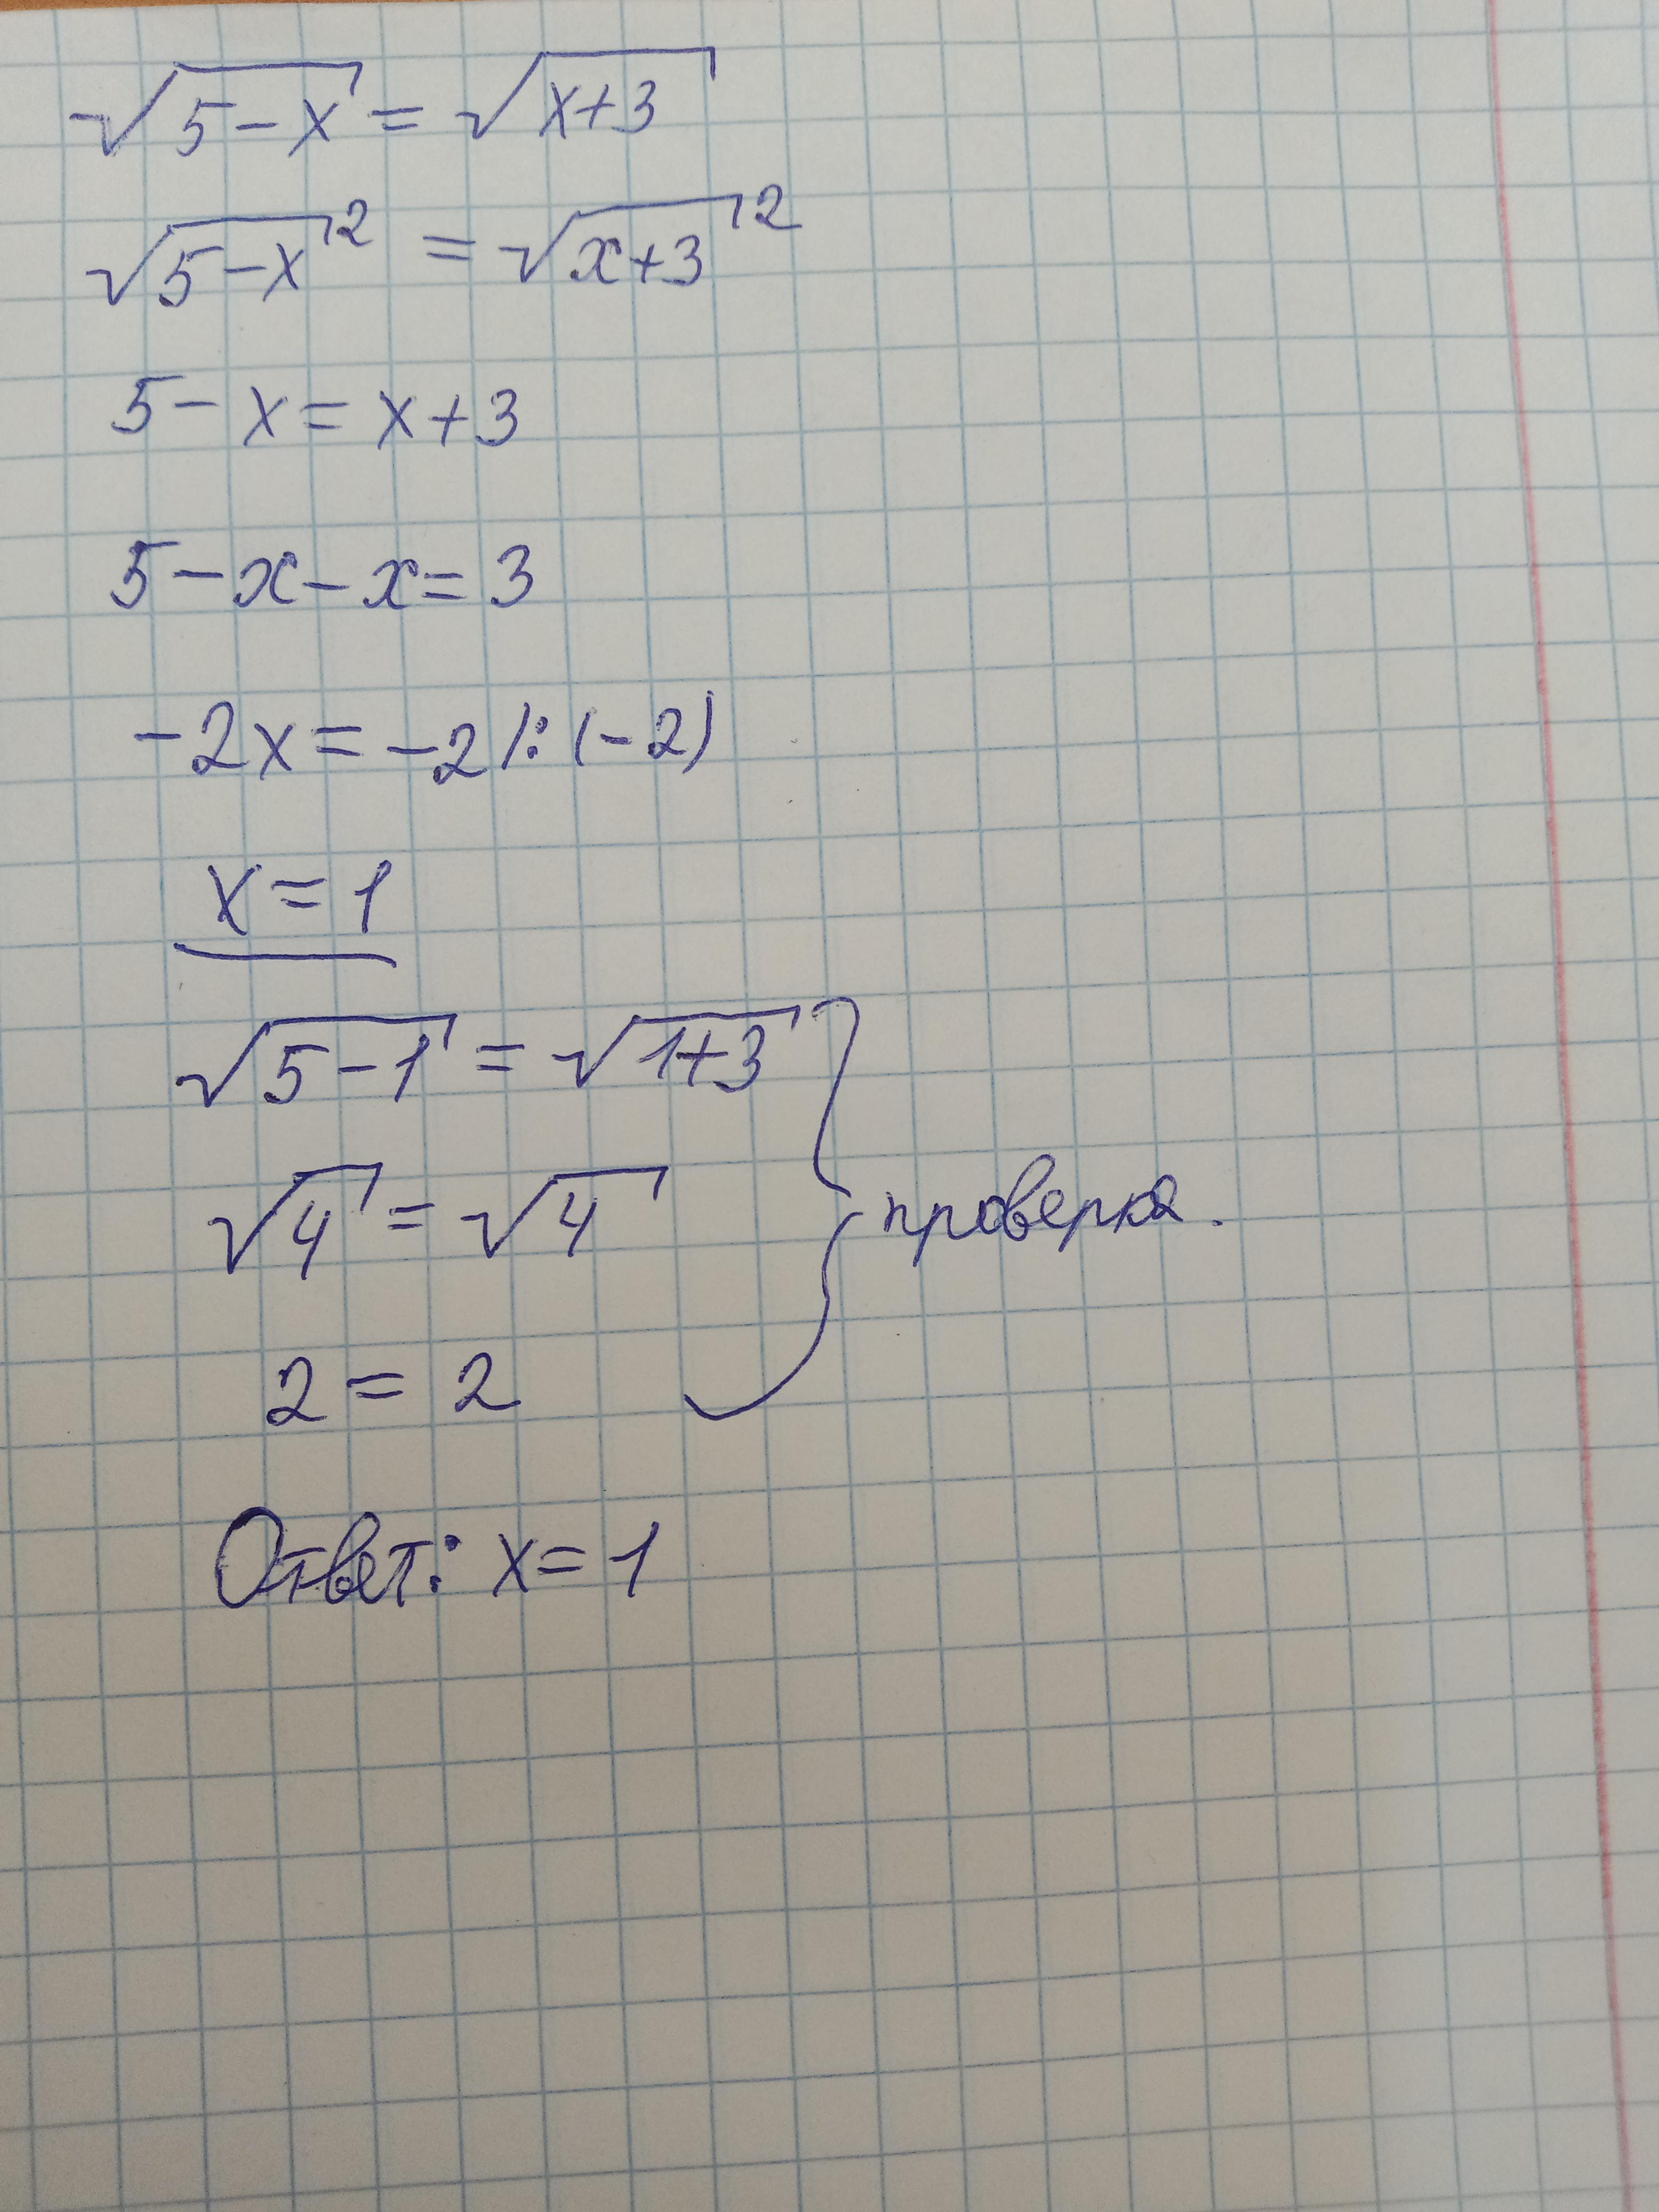 √5-x = √x+3
√5-x² = √x+3²
5-x = x+3
5-x-x = 3
-2x = -2 |:(-2)
x = 1
√5-1 = √1+3
√4 = √4
проверка.
2 = 2
Ответ: x = 1